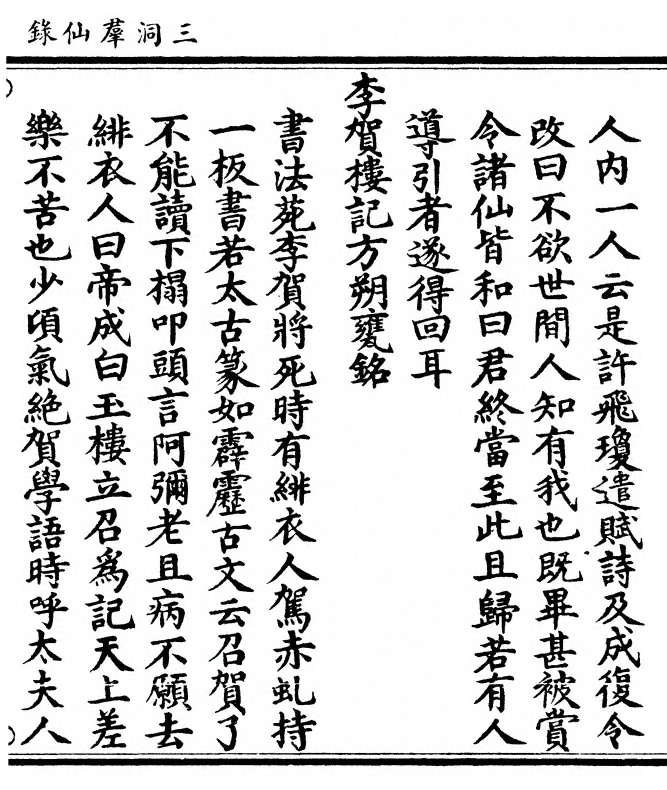 三洞羣仙錄
人内一人云是許飛瓊遣賦詩及成復令
改曰不欲世間人知有我也既畢甚被賞
令諸仙皆和曰君終當至此且歸若有人
導引者遂得回耳
李賀樓記方朔甕銘
書法苑李賀將死時有緋衣人駕赤虬持
一板書若太古篆如霹靂古文云召賀了
不能讀下榻叩頭言阿彌老且病不願去
緋衣人曰帝成白玉樓立召爲記天上差
樂不苦也少頃氣絕賀學語時呼太夫人